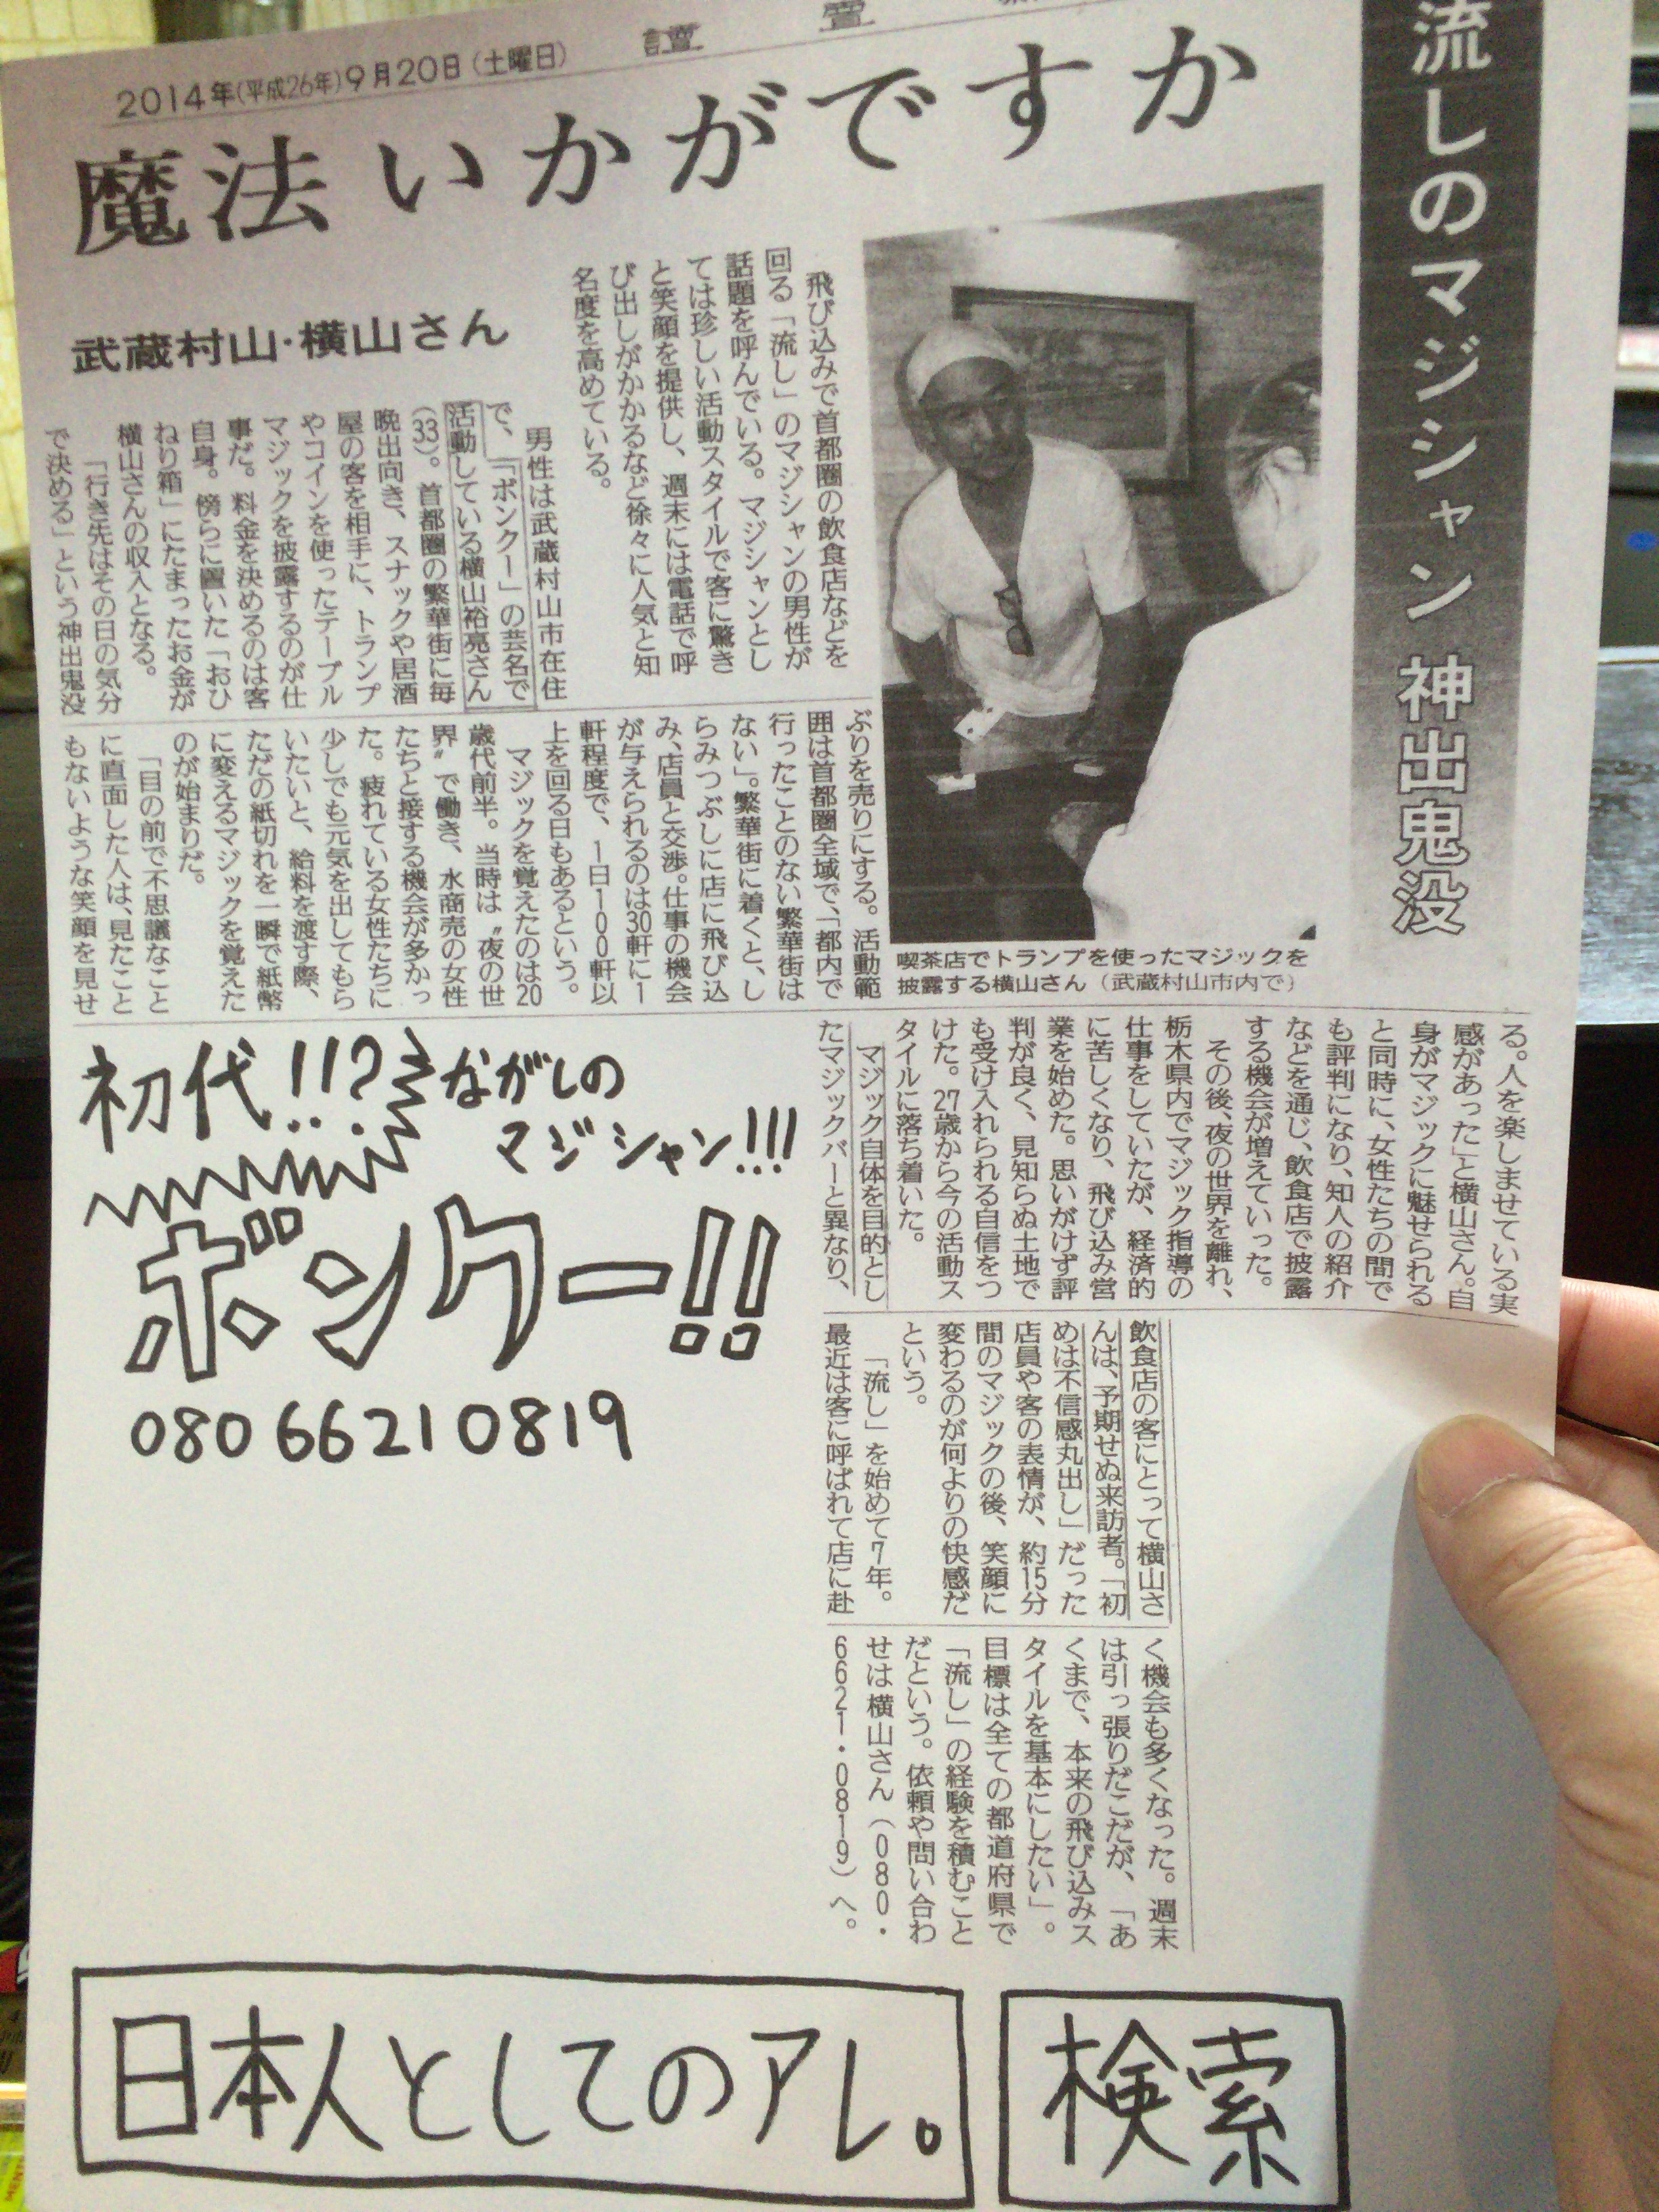 2014年(平成26年)9月20日(土曜日)
流しのマジシャン 神出鬼没
魔法いかがですか
武蔵村山・横山さん
飛び込みで首都圏の飲食店などを
回る「流し」のマジシャンの男性が
話題を呼んでいる。マジシャンとし
ては珍しい活動スタイルで客に驚き
と笑顔を提供し、週末には電話で呼
び出しがかかるなど徐々に人気と知
名度を高めている。
男性は武蔵村山市在住
で、「ボンクー」の芸名で
活動している横山裕亮さん
(33)。首都圏の繁華街に毎
晩出向き、スナックや居酒
屋の客を相手に、トランプ
やコインを使ったテーブル
マジックを披露するのが仕
事だ。料金を決めるのは客
自身。傍らに置いた「おひ
ねり箱」にたまったお金が
横山さんの収入となる。
「行き先はその日の気分
で決める」という神出鬼没
ぶりを売りにする。活動範
囲は首都圏全域で、「都内で
行ったことのない繁華街は
ない」。繁華街に着くと、し
らみつぶしに店に飛び込
み、店員と交渉。仕事の機会
が与えられるのは30軒に1
軒程度で、1日100軒以
上を回る日もあるという。
マジックを覚えたのは20
歳代前半。当時は〝夜の世
界〟で働き、水商売の女性
たちと接する機会が多かっ
た。疲れている女性たちに
少しでも元気を出してもら
いたいと、給料を渡す際、
ただの紙切れを一瞬で紙幣
に変えるマジックを覚えた
のが始まりだ。
「目の前で不思議なこと
に直面した人は、見たこと
もないような笑顔を見せ
喫茶店でトランプを使ったマジックを
披露する横山さん(武蔵村山市内で)
る。人を楽しませている実
感があった」と横山さん。自
身がマジックに魅せられる
と同時に、女性たちの間で
も評判になり、知人の紹介
などを通じ、飲食店で披露
する機会が増えていった。
その後、夜の世界を離れ、
栃木県内でマジック指導の
仕事をしていたが、経済的
に苦しくなり、飛び込み営
業を始めた。思いがけず評
判が良く、見知らぬ土地で
も受け入れられる自信をつ
けた。27歳から今の活動ス
タイルに落ち着いた。
マジック自体を目的とし
たマジックバーと異なり、
飲食店の客にとって横山さ
んは、予期せぬ来訪者。「初
めは不信感丸出し」だった
店員や客の表情が、約15分
間のマジックの後、笑顔に
変わるのが何よりの快感だ
という。
「流し」を始めて7年。
最近は客に呼ばれて店に赴
く機会も多くなった。週末
は引っ張りだこだが、「あ
くまで、本来の飛び込みス
タイルを基本にしたい」。
目標は全ての都道府県で
「流し」の経験を積むこと
だという。依頼や問い合わ
せは横山さん(080・
6621・0819)へ。
初代!!? ながしの
マジシャン!!!
ボンクー!!
080 6621 0819
日本人としてのアレ。 検索